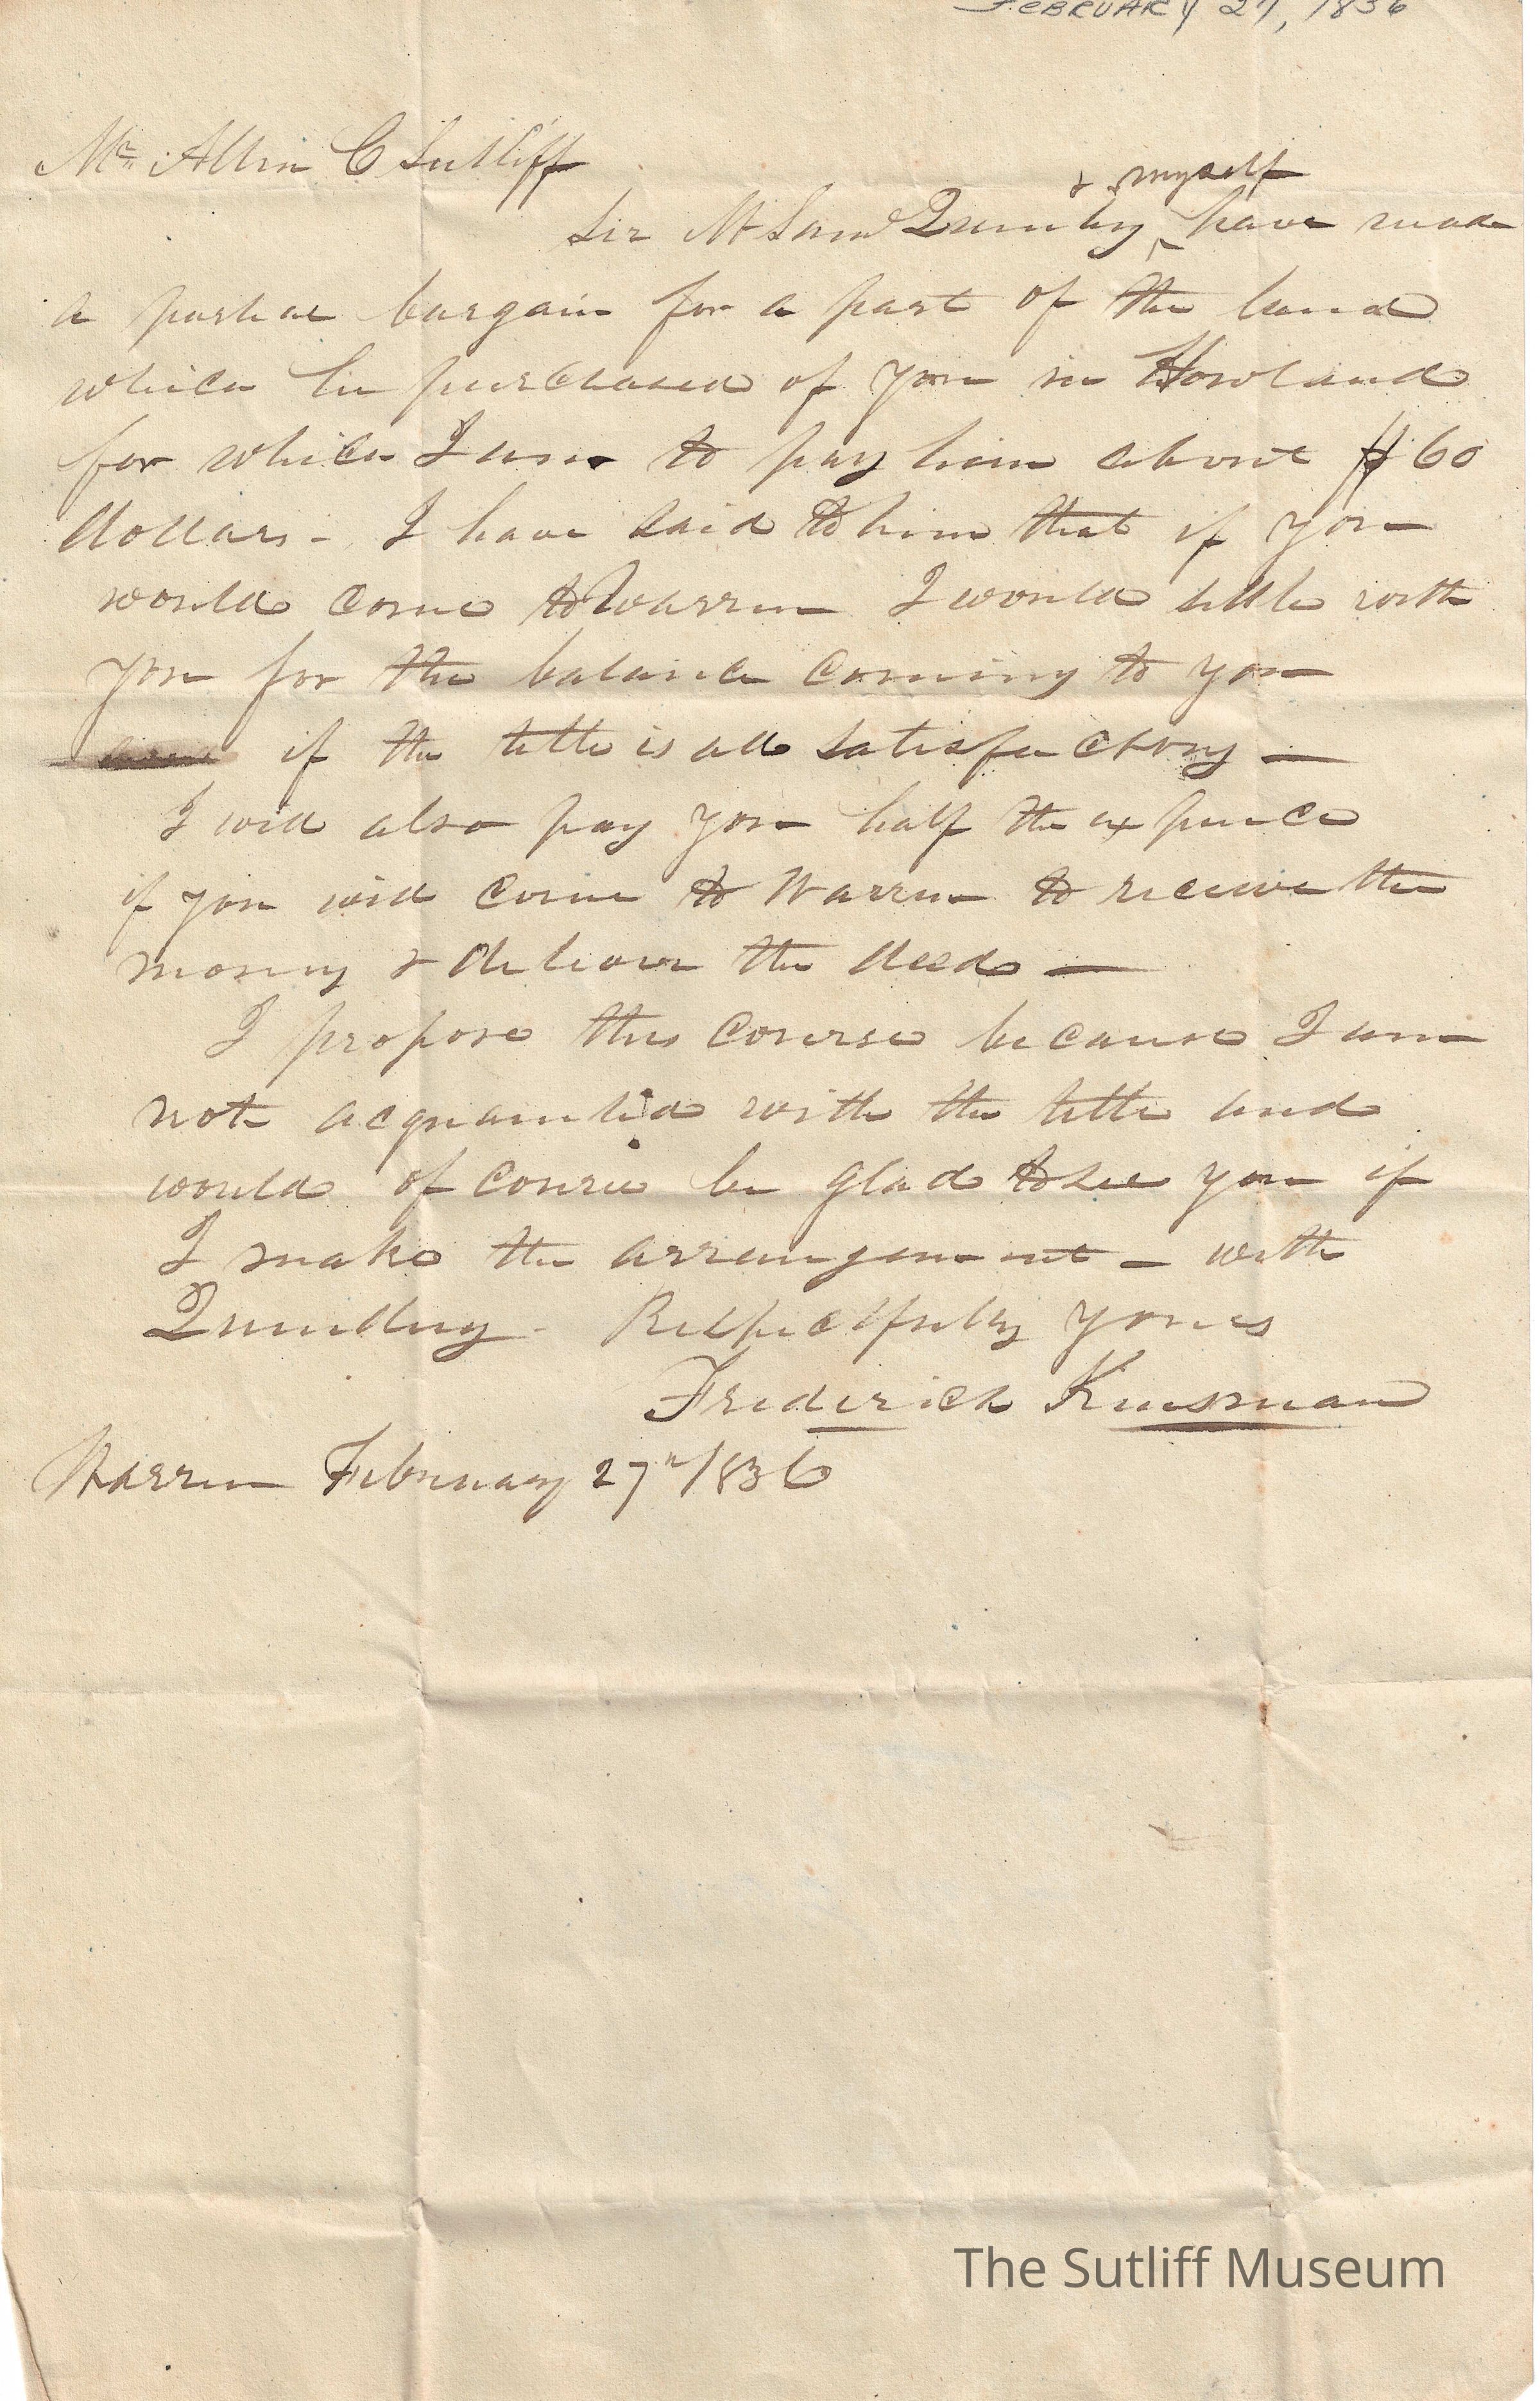 FEBRUARY 27, 1836
Mr. Allin C Sutliff
& myself
Sir Mr Saml Quinby have made
a partial bargain for a part of the land
which he purchased of you in Howland
for which I am to pay him about $60
dollars - I have said to him that if you
would come to Warren I would settle with
you for the balance coming to you
if the title is all satisfactory —
I will also pay you half the expence
if you will come to Warren to receive the
money & deliver the deed —
I propose this course because I am
not acquainted with the title and
would of course be glad to see you if
I make the arrangement — with
Quinby - Respectfully yours
Frederick Kinsman
Warren February 27th 1836
The Sutliff Museum